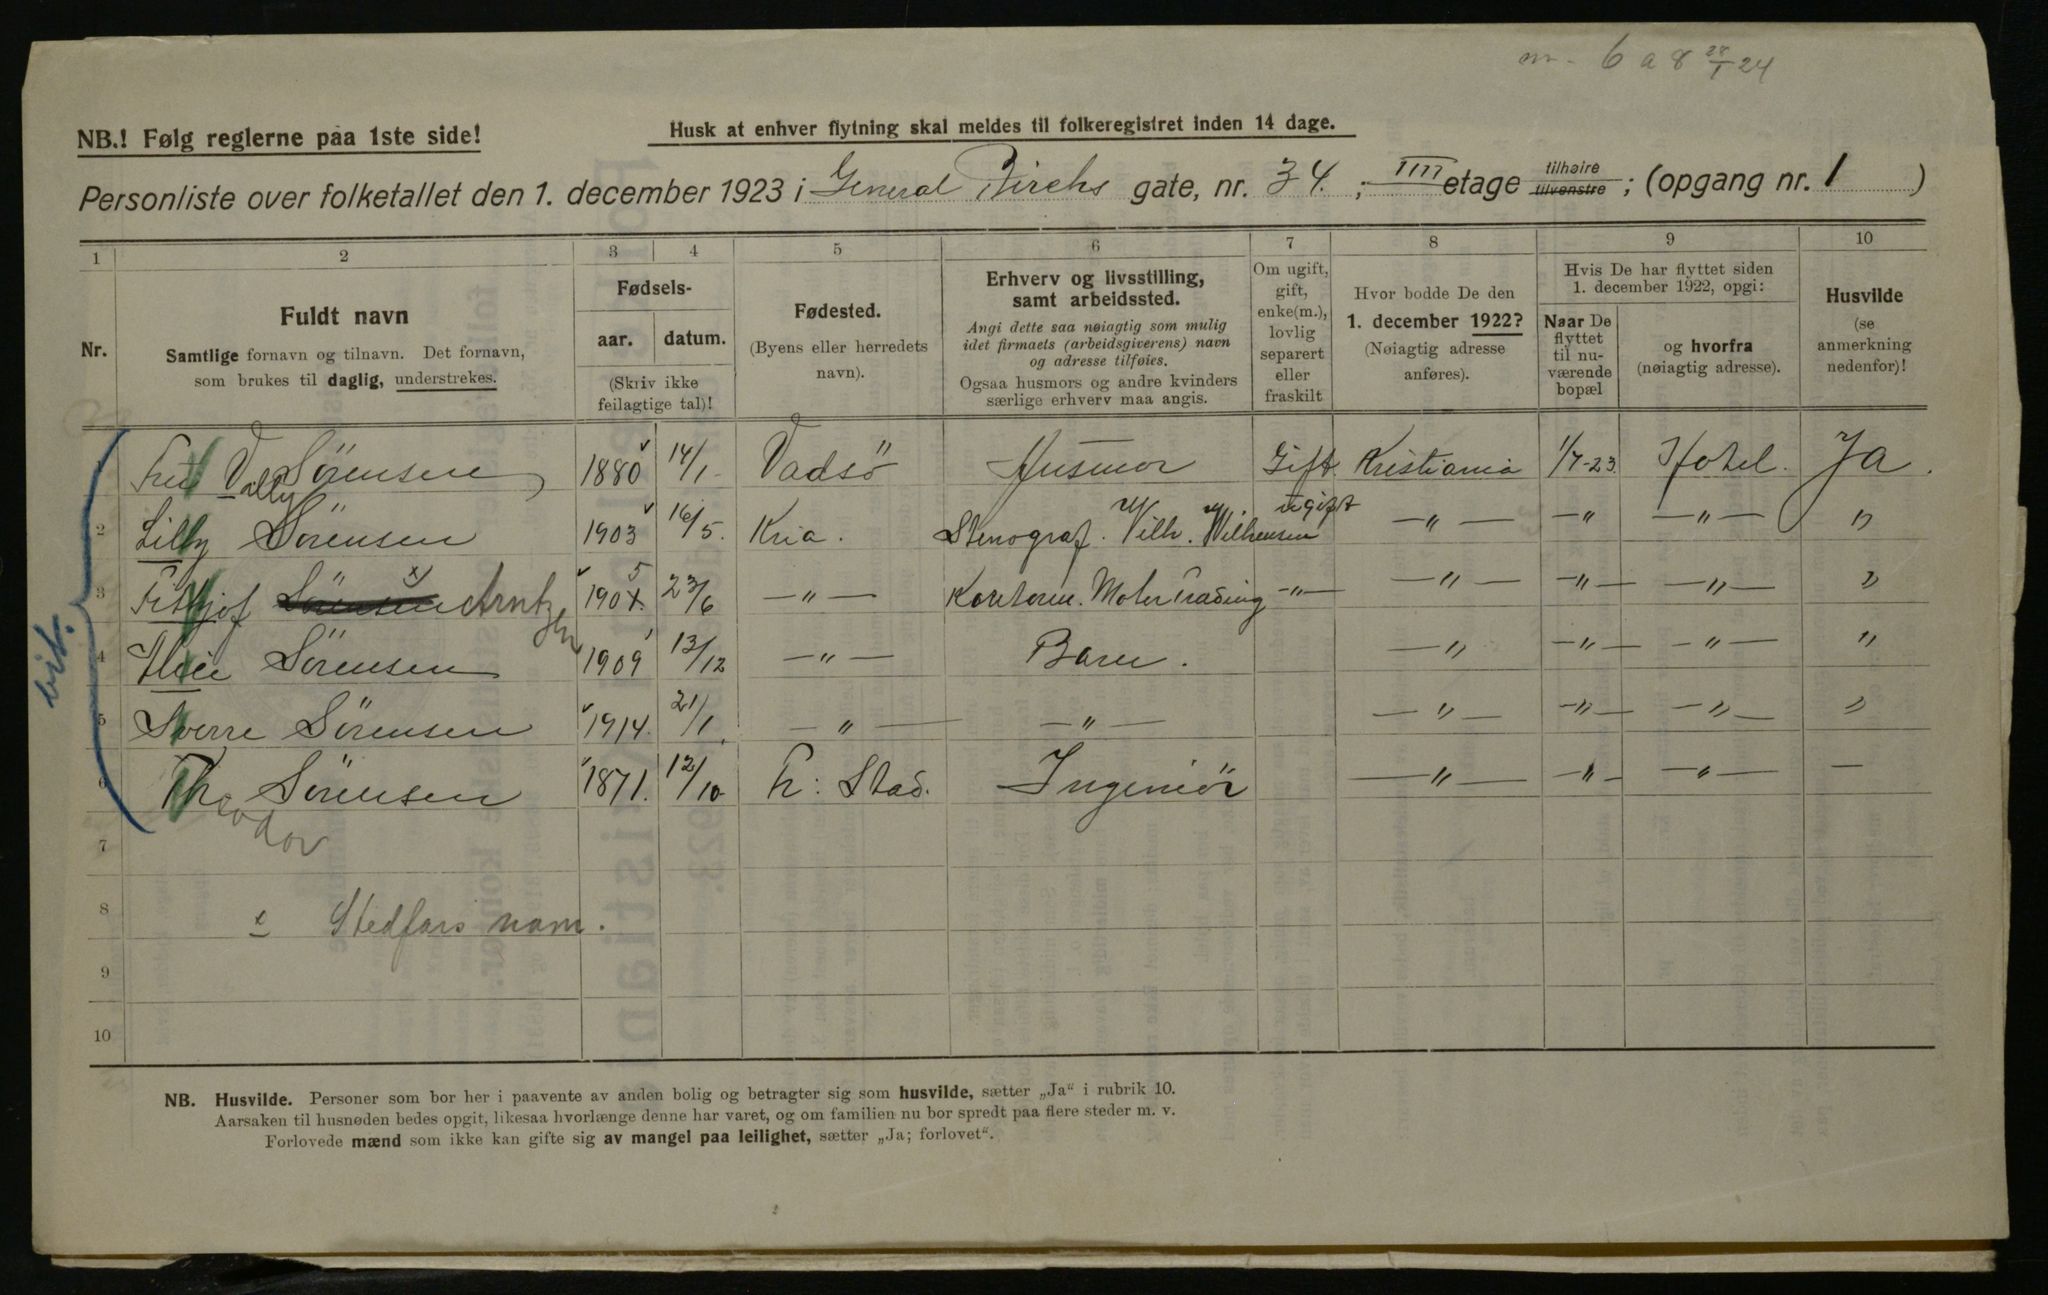 m. 6 a 8 28/1 24
NB.! Følg reglerne paa 1ste side!
Husk at enhver flytning skal meldes til folkeregistret inden 14 dage.
Personliste over folketallet den 1. december 1923 i General Birchs gate, nr. 34. ; IIII etage tilhøire tilvenstre ; (opgang nr. 1 )
1 2 3 4 5 6 7 8 9 10
Nr.
Fuldt navn
Samtlige fornavn og tilnavn. Det fornavn,
som brukes til daglig, understrekes.
Fødsels-
aar. datum.
(Skriv ikke
feilagtige tal)!
Fødested.
(Byens eller herredets
navn).
Erhverv og livsstilling,
samt arbeidssted.
Angi dette saa nøiagtig som mulig
idet firmaets (arbeidsgiverens) navn
og adresse tilføies.
Ogsaa husmors og andre kvinders
særlige erhverv maa angis.
Om ugift,
gift,
enke(m.),
lovlig
separert
eller
fraskilt
Hvor bodde De den
1. december 1922?
(Nøiagtig adresse
anføres).
Hvis De har flyttet siden
1. december 1922, opgi:
Naar De
flyttet
til nu-
værende
bopæl
og hvorfra
(nøiagtig adresse).
Husvilde
(se
anmerkning
nedenfor)!
Vally Sörensen 1880 14/1 Vadsö Husmor Gift Kristiania 1/7-23. Hotel. Ja.
2 Lilly Sörensen 1903 16/5. Kria. Stenograf. Vilh. Wilhemsen ugift —„— —„ —„— „
3 Fritjof Sörensen x) Arntzen 1905 23/6 —„— Kontorm. Motor Trading —„— —„— —„— —„— „
4 Alice Sörensen 1909 13/12 —„— Barn. —„— —„— —„— „
5 Sverre Sörensen 1914. 21/1. —„— —„— —„— —„— —„— „
6 Theodor Sörensen 1871. 12/10 Fr: Stad. Ingeniör —„— —„— —„— —
7
8 x Stedfars navn.
9
10
NB. Husvilde. Personer som bor her i paavente av anden bolig og betragter sig som husvilde, sætter „Ja“ i rubrik 10.
Aarsaken til husnøden bedes opgit, likesaa hvorlænge denne har varet, og om familien nu bor spredt paa flere steder m. v.
Forlovede mænd som ikke kan gifte sig av mangel paa leilighet, sætter „Ja; forlovet“.